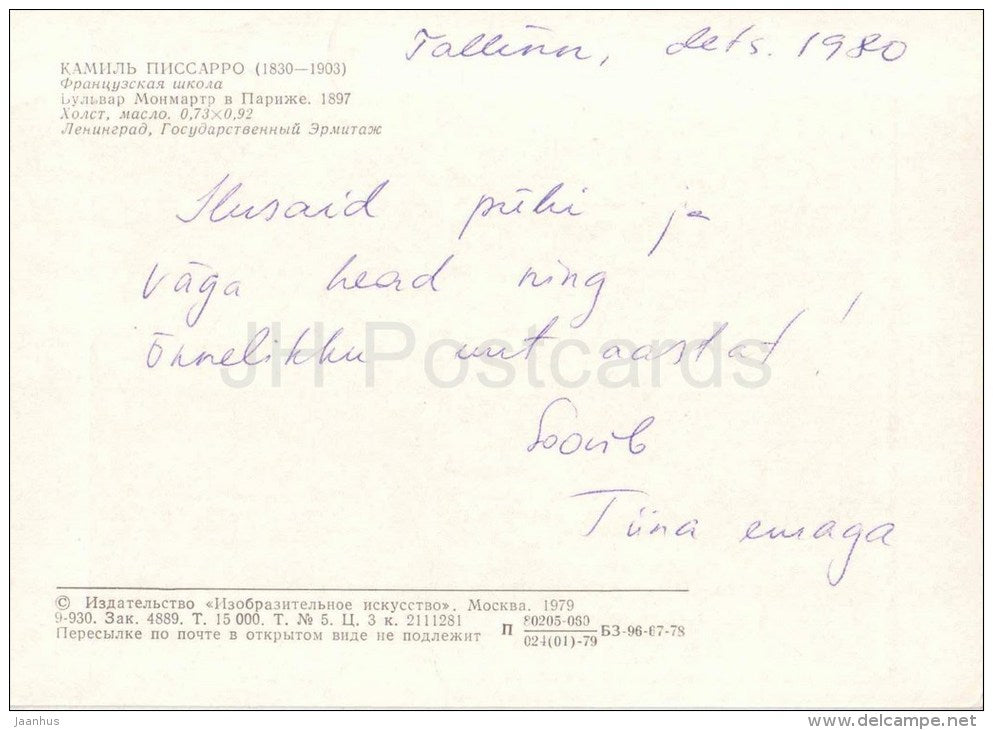 Tallinn, dets. 1980
КАМИЛЬ ПИССАРРО (1830—1903)
Французская школа
Бульвар Монмартр в Париже. 1897
Холст, масло. 0,73×0,92
Ленинград, Государственный Эрмитаж
Ilusaid pühi ja
väga head ning
õnnelikku uut aastat!
JH Postcards
Soovib
Tiina emaga
© Издательство «Изобразительное искусство». Москва. 1979
9-930. Зак. 4889. Т. 15 000. Т. № 5. Ц. 3 к. 2111281
Пересылке по почте в открытом виде не подлежит
П 80205-060 БЗ-96-67-78
024(01)-79
Jaanhus
www.delcampe.net